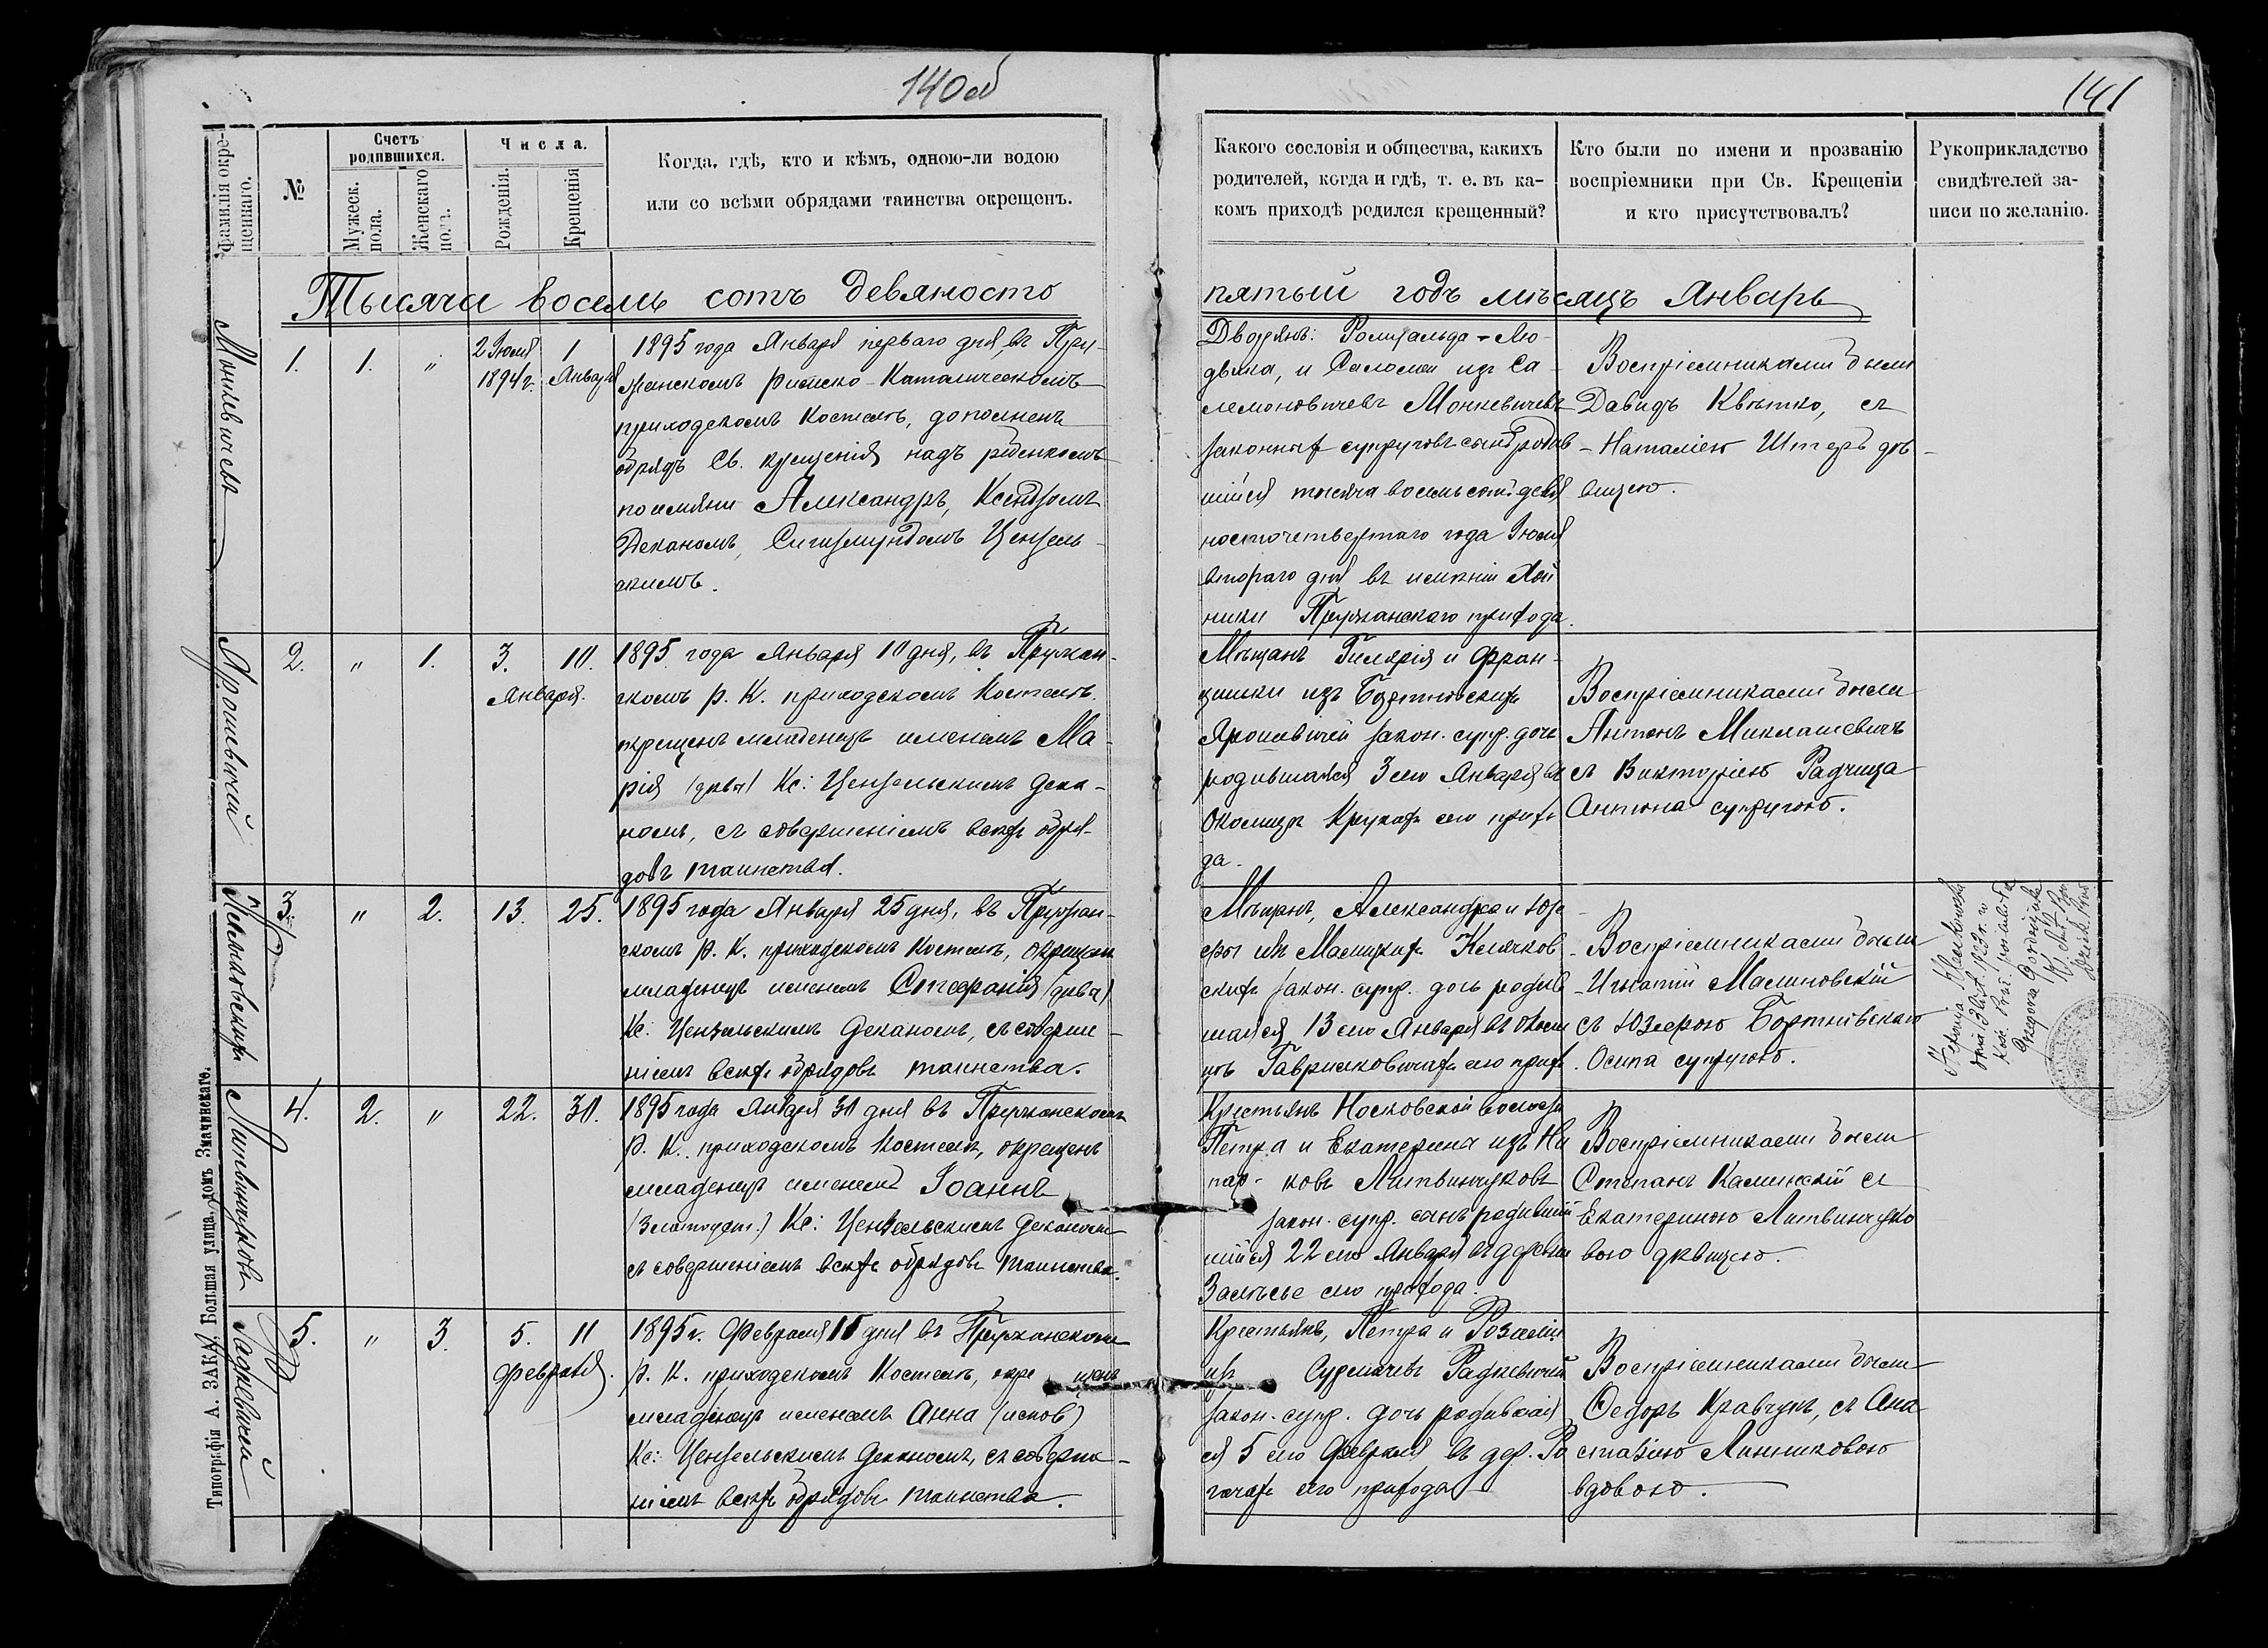 140об
141
Фамилія окре-
щеннаго.
№
Счетъ
родившихся.
Мужеск.
пола.
Женскаго
пола.
Числа.
Рожденія.
Крещенія
Когда, гдѣ, кто и кѣмъ, одною-ли водою
или со всѣми обрядами таинства окрещенъ.
Какого сословія и общества, какихъ
родителей, когда и гдѣ, т. е. въ ка-
комъ приходѣ родился крещенный?
Кто были по имени и прозванію
воспріемники при Св. Крещеніи
и кто присутствовалъ?
Рукоприкладство
свидѣтелей за-
писи по желанію.
Тысяча восемь сотъ девяносто
пятый годъ мѣсяцъ Январь
Монкевичевъ
1. 1. "
2 Іюля
1894 г.
1
Января
1895 года Января перваго дня, въ Пру-
жанскомъ римско-Католическомъ
приходскомъ Костелѣ, дополненъ
обрядъ Св. крещенія надъ ребенкомъ
по имяни Александръ, Ксендзомъ
Деканомъ, Сигизмундомъ Цензель-
скимъ.
Дворянъ: Ромуальда-Лю-
двика, и Саломеи изъ Са-
лемоновичевъ Монкевичевъ
законныхъ супруговъ сынъ родив
шійся тысяча восемьсотъ девя
носточетвертаго года Іюля
втораго дня въ имѣніи
ники Пружанскаго прихода.
Воспріемниками были
Давидъ Квятко, съ
Наталіею Штеръ дѣ-
вицею.
Ярошевичей
2. " 1. 3. 10.
Января.
1895 года Января 10 дня, въ Пружан-
скомъ р. К. приходскомъ Костелѣ
окрещенъ младенецъ именемъ Ма-
рія (два) Кс: Цензельскимъ Дека-
номъ, съ совершеніемъ всѣхъ обря-
довъ таинства.
Мѣщанъ Гилярія и Фран-
цишки изъ Бортновскихъ
Ярошевичей закон. супр. дочь
родившаяся 3 сего Января въ
Околицѣ сего прихо
да.
Воспріемниками были
Антонъ Миклашевичъ
съ Викторіею Радчица
Антона супругою.
3. " 2. 13. 25.
1895 года Января 25 дня, въ Пружан-
скомъ р. К. приходскомъ Костелѣ, окрещенъ
младенецъ именемъ Стефанія (два)
Кс: Цензельскимъ Деканомъ, съ соверше-
ніемъ всѣхъ обрядовъ таинства.
Мѣщанъ, Александра и Юзе-
фы изъ Малицкихъ
закон. супр. дочь родив
шаяся 13 сего Января въ Околи
цѣ Гавриковичахъ сего прих.
Воспріемниками были
Игнатій Малиновскій
съ Юзефою Бортновскаго
Осипа супругою.
Литвинчуковъ
4. 2. " 22. 30.
1895 года Января 30 дня въ Пружанскомъ
р. К. приходскомъ Костелѣ, окрещенъ
младенецъ именемъ Іоаннъ
(Златоуст.) Кс: Цензельскимъ Деканомъ
съ совершеніемъ всѣхъ обрядовъ таинства.
Крестьянъ Носковской волости
Петра и Екатерины изъ
ковъ Литвинчуковъ
закон. супр. сынъ родивший
шійся 22 сего Января въ деревни
Залѣсье сего прихода.
Воспріемниками были
Степанъ Каминскій съ
Екатериною Литвинчуко
вою дѣвицею.
Радкевичей
5. " 3. 5. 11
Февраля.
1895 г. Февраля дня въ Пружанскомъ
р. К. приходскомъ Костелѣ, окре щенъ
младенецъ именемъ Анна
Кс: Цензельскимъ Деканомъ, съ соверше-
ніемъ всѣхъ обрядовъ таинства.
Крестьянъ, Петра и Розаліи
изъ Радкевичей
закон. супр. дочь родившая
ся 5 сего Февраля въ дер. Ро
гачахъ сего прихода
Воспріемниками были
Федоръ Кравчукъ, съ Ана-
стазіею Линниковою
вдовою.
Типографія А. ЗАКА, Большая улица, домъ Значинскаго.